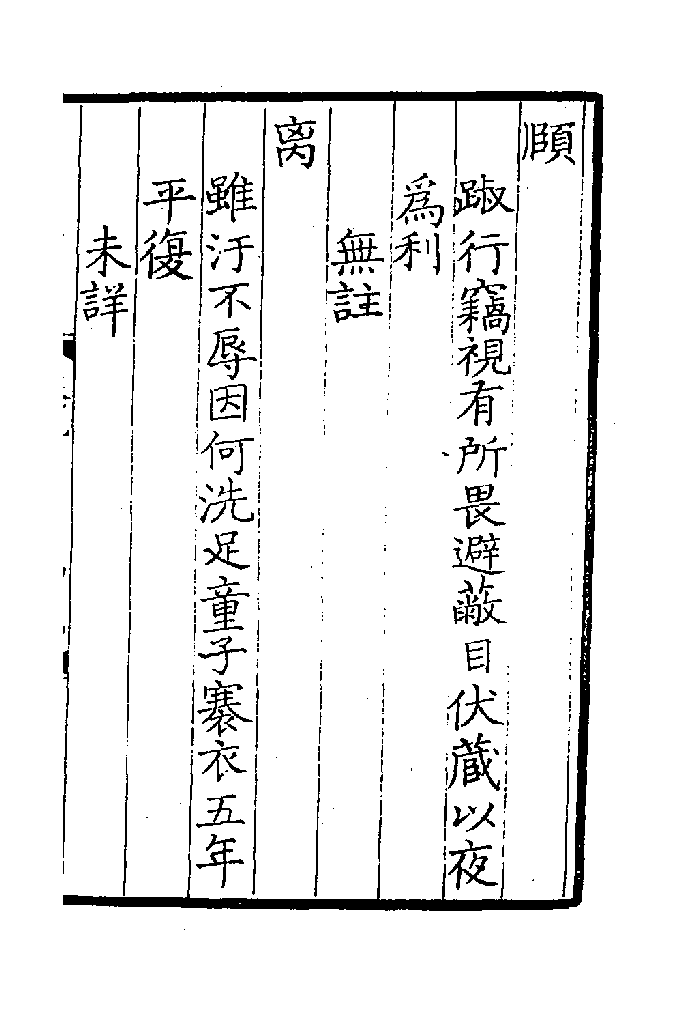 頤
踧行竊視有所畏避蔽目伏藏以夜
爲利
無註
离
雖汙不辱因何洗足童子褰衣五年
平復
未詳